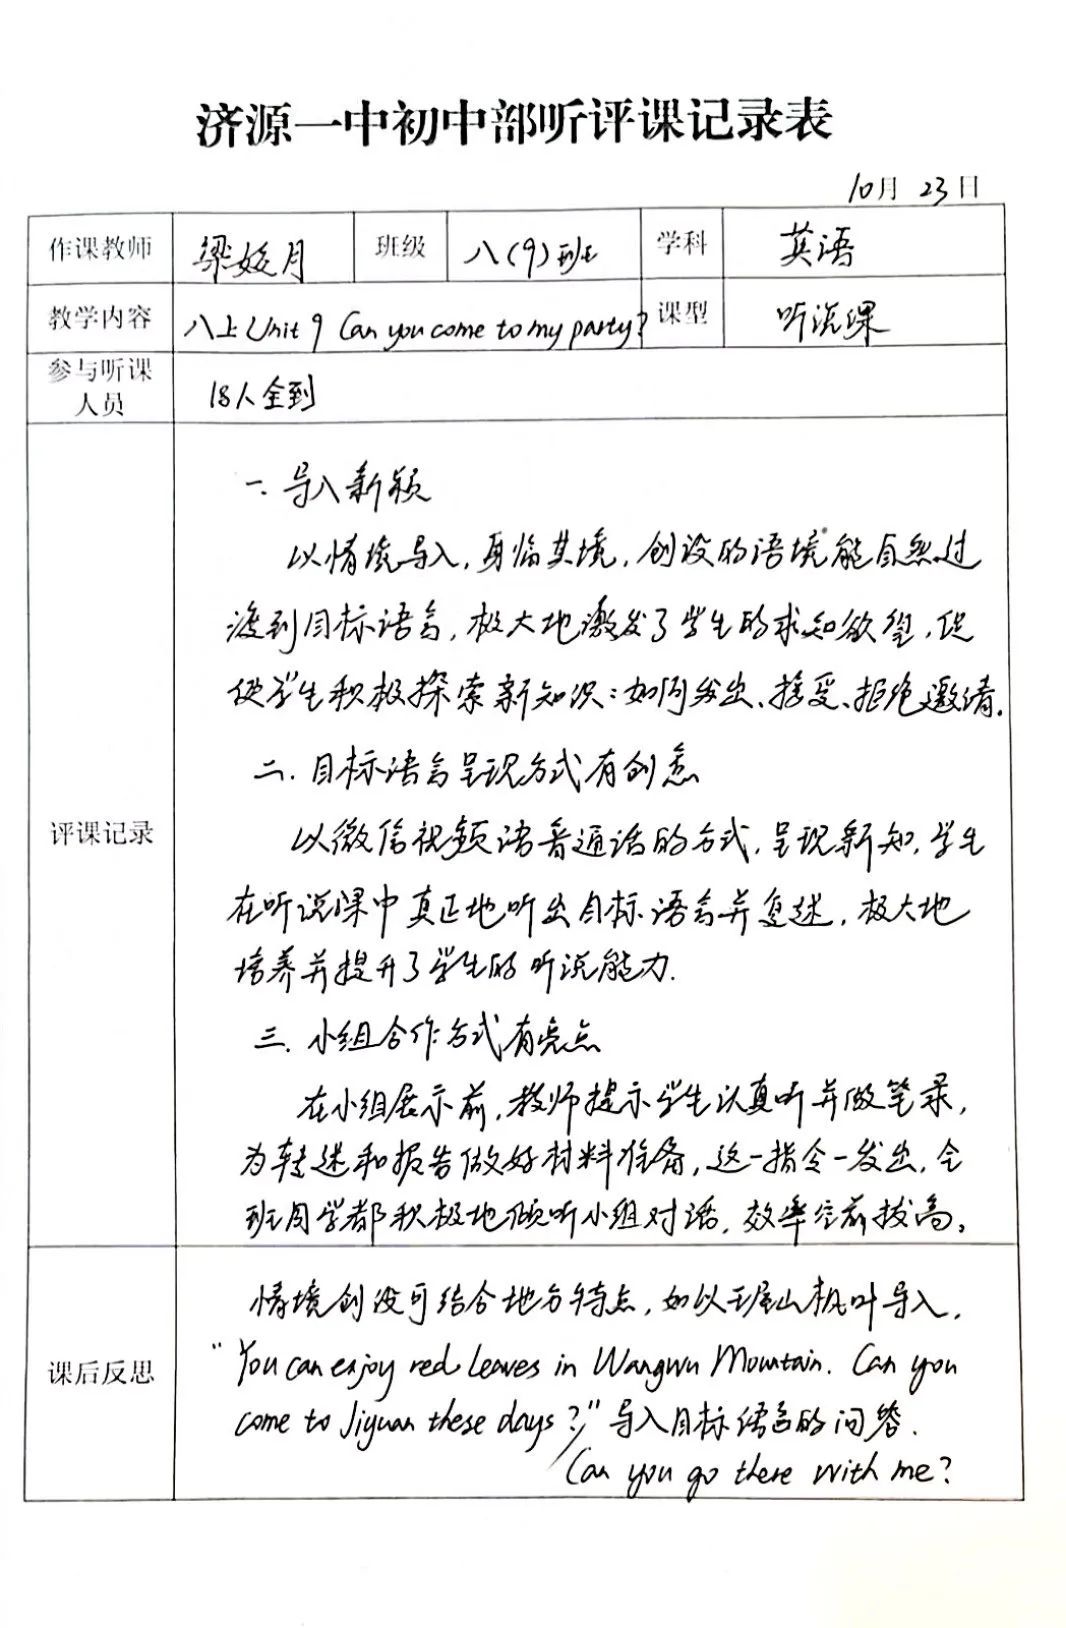 济源一中初中部听评课记录表
10月 23日
作课教师 梁姣月 班级 八(9)班 学科 英语
教学内容 八上 Unit 9 Can you come to my party? 课型 听说课
参与听课人员 18人全到
评课记录
一. 导入新颖
以情境导入,身临其境,创设的语境能自然过
渡到目标语言,极大地激发了学生的求知欲望,促
使学生积极探索新知识:如何发出、接受、拒绝邀请.
二. 目标语言呈现方式有创意
以微信视频语音通话的方式,呈现新知,学生
在听说课中真正地听出目标语言并复述,极大地
培养并提升了学生的听说能力.
三. 小组合作方式有亮点
在小组展示前,教师提示学生认真听并做笔录,
为转述和报告做好材料准备,这一指令一发出,全
班同学都积极地倾听小组对话,效率空前拔高。
课后反思
情境创设可结合地方特点,如以王屋山枫叶导入,
"You can enjoy red leaves in Wangwu Mountain. Can you
come to Jiyuan these days?" 导入目标语言的问答.
Can you go there with me?